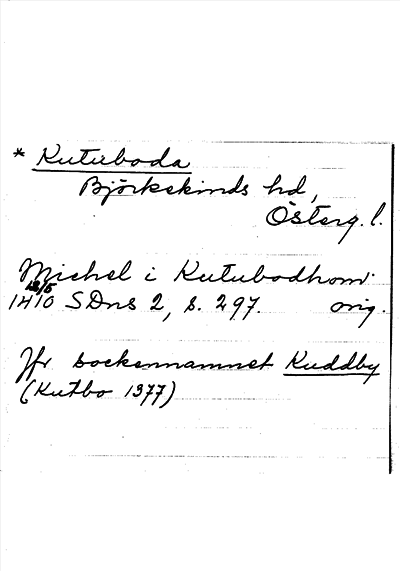 * Kutuboda
Björkekinds hd,
Österg. l.
Michel i Kutubodhom
18/5
1410 SDns 2, s. 297. orig.
Jfr sockennamnet Kuddby
(Kutbo 1377)